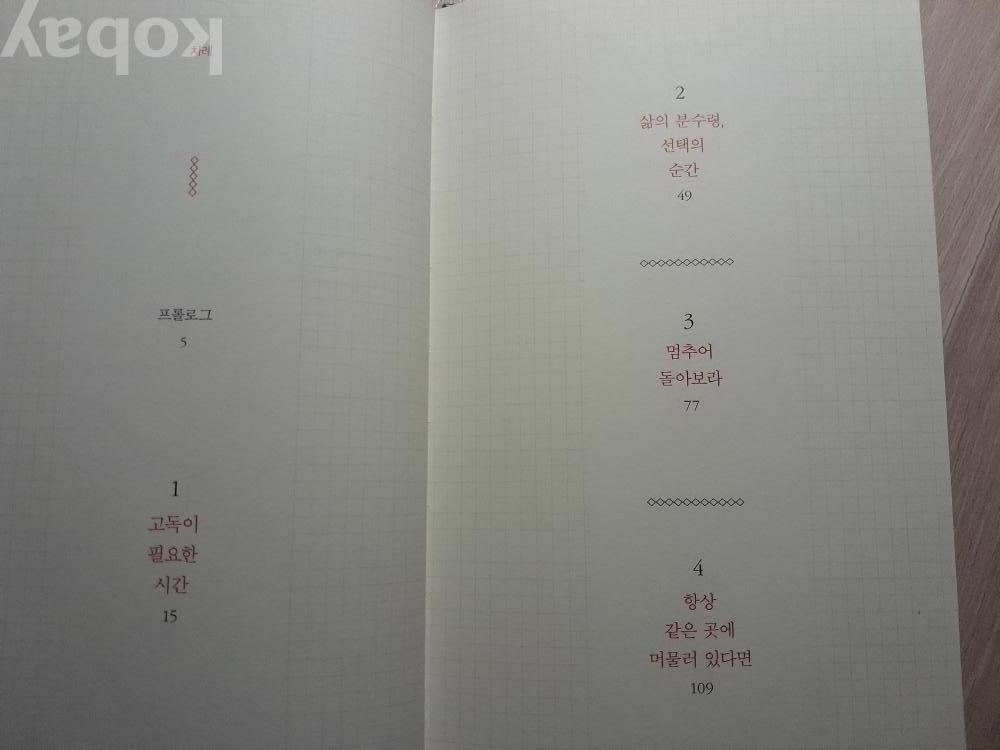 kobay
차례
프롤로그
5
1
고독이
필요한
시간
15
2
삶의 분수령,
선택의
순간
49
3
멈추어
돌아보라
77
4
항상
같은 곳에
머물러 있다면
109